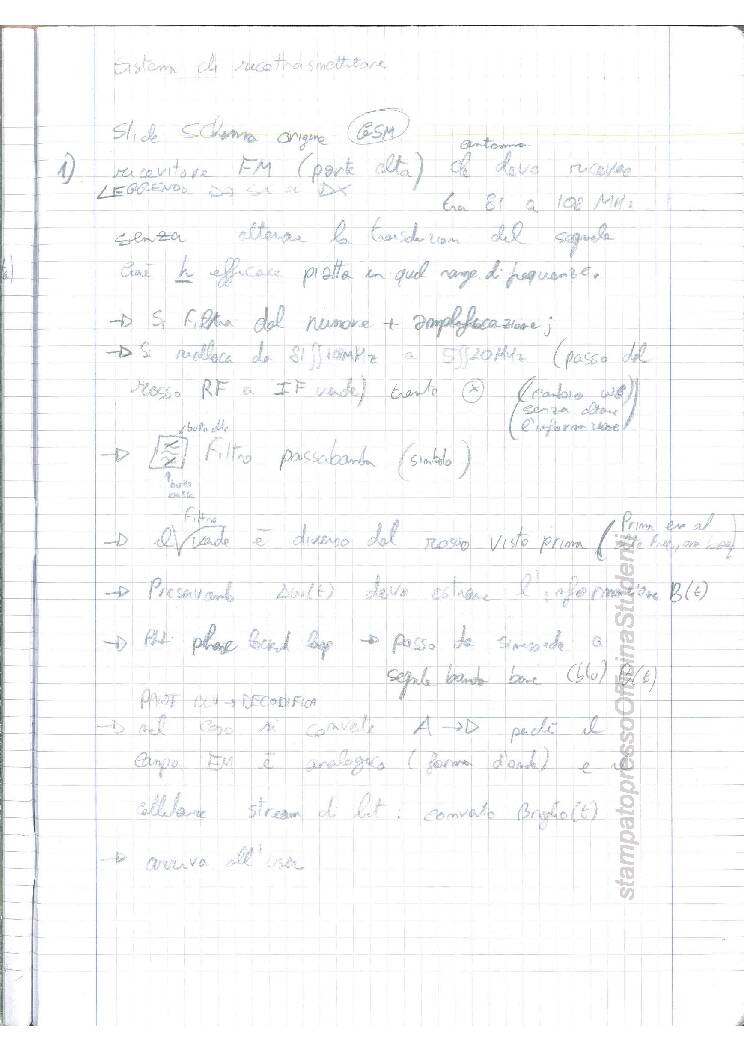 Sistema di ricetrasmettitore
Slide Schema origine GSM
1) ricevitore FM (parte alta) che deve ricevere
antenna
LEGGENDO DA SX A DX
tra 81 a 108 MHz
senza alterare la del segnale
cioè h efficace piatta in quel range di frequenze.
→ Si Filtra dal rumore + amplificazione;
→ Si da 81 MHz a 20 MHz (passo dal
rosso RF a IF verde) tramite ⊗ (cambio
senza alterare
l'informazione)
buta alta
→ Filtro passabanda (simbolo)
buta
bassa
Filtro
→ il verde è diverso dal rosso visto prima (Prima era al
→ Preservando Δω(t) devo estrarre l'informazione B(t)
→ PLL phase locked loop → passo da sinusoide a
segnale banda base (blu) B(t)
PARTE BLU → DECODIFICA
→ nel caso si converte A → D perché il
Campo EM è analogico (forma d'onda) e il
cellulare stream di bit: converto
→ arriva all'user
stampatopressoOfficinaStudenti